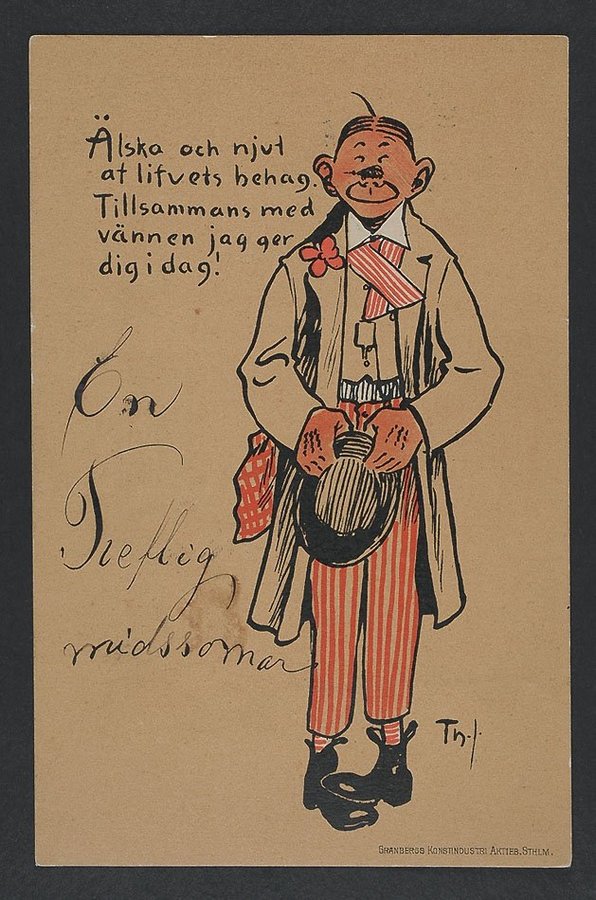 Älska och njut
at lifvets behag.
Tillsammans med
vännen jag ger
dig i dag!
En
Treflig
midssomar
Th. J.
GRANBERGS KONSTINDUSTRI AKTIEB. STHLM.